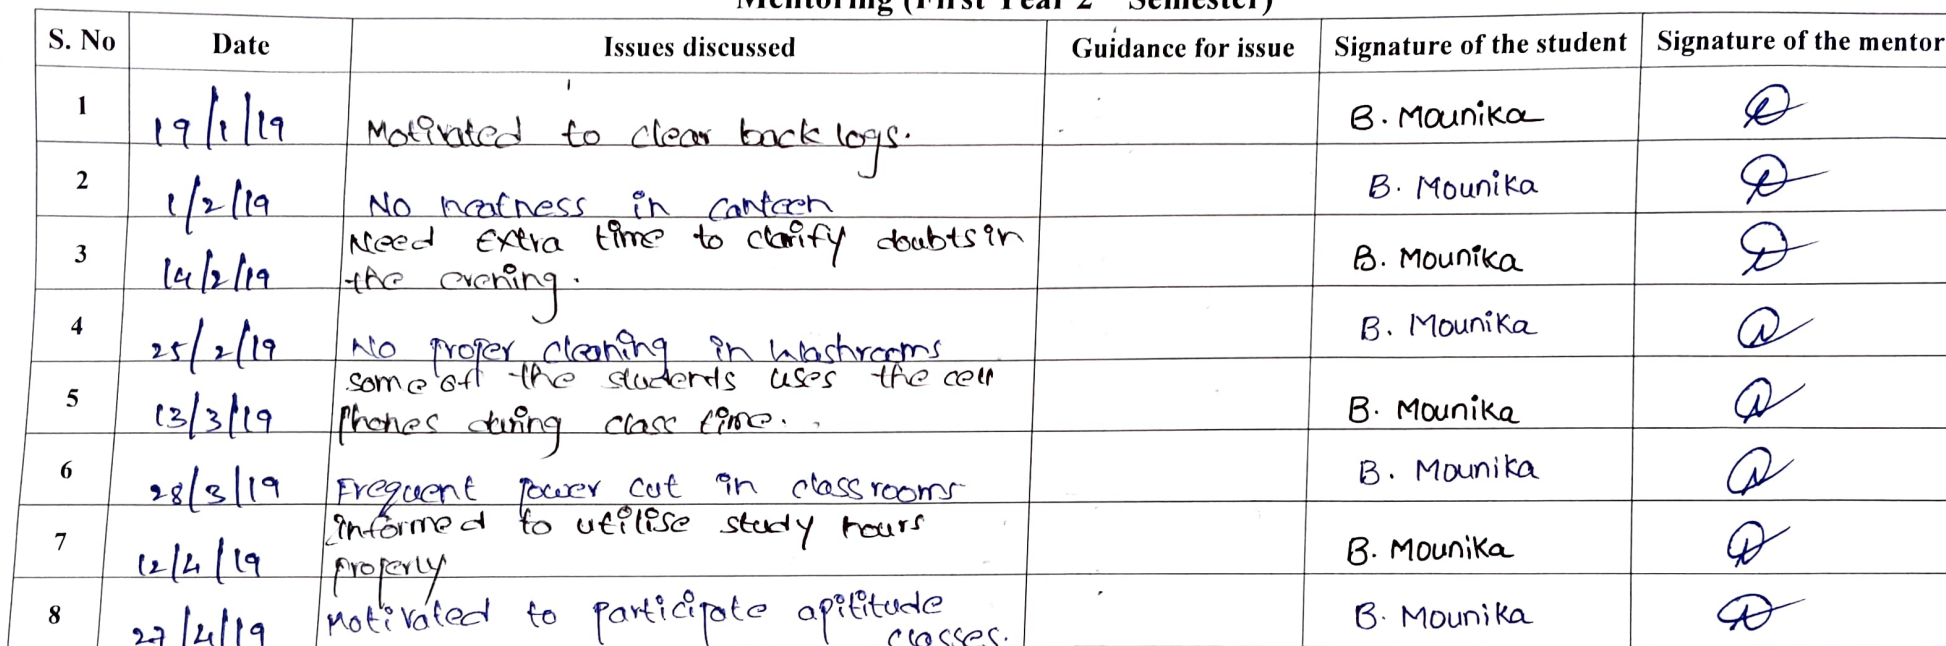 Mentoring (First Year 2 Semester)
S. No Date Issues discussed Guidance for issue Signature of the student Signature of the mentor
1 19/1/19 Motivated to clear back logs. B. Mounika
2 1/2/19 No neatness in canteen B. Mounika
3 14/2/19 Need Extra time to clarify doubts in
the evening. B. Mounika
4 25/2/19 No proper cleaning in washrooms B. Mounika
5 13/3/19 some off the students uses the cell
phones during class time. B. Mounika
6 28/3/19 Frequent power cut in classrooms B. Mounika
7 12/4/19 informed to utilise study hours
properly B. Mounika
8 27/4/19 Motivated to participate apititude
classes. B. Mounika